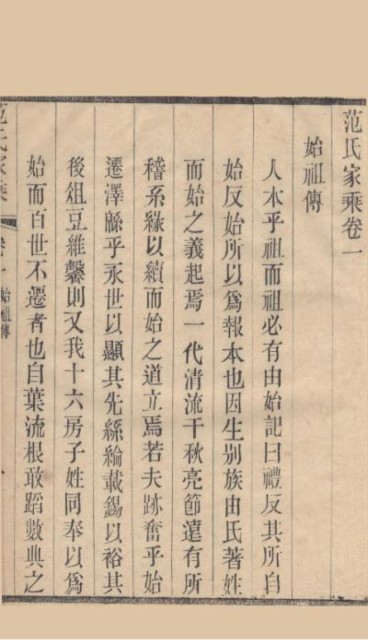 范氏家乘卷一
始祖傳
人本乎祖而祖必有由始記曰禮反其所自
始反始所以為報本也因生別族由氏著姓
而始之義起焉一代清流千秋亮節遠有所
稽系緣以續而始之道立焉若夫跡奮乎始
遷澤緜乎永世以顯其先絲綸載錫以裕其
後俎豆維馨則又我十六房子姓同奉以為
始而百世不遷者也自葉流根敢蹈數典之
范氏家乘
卷一
始祖傳